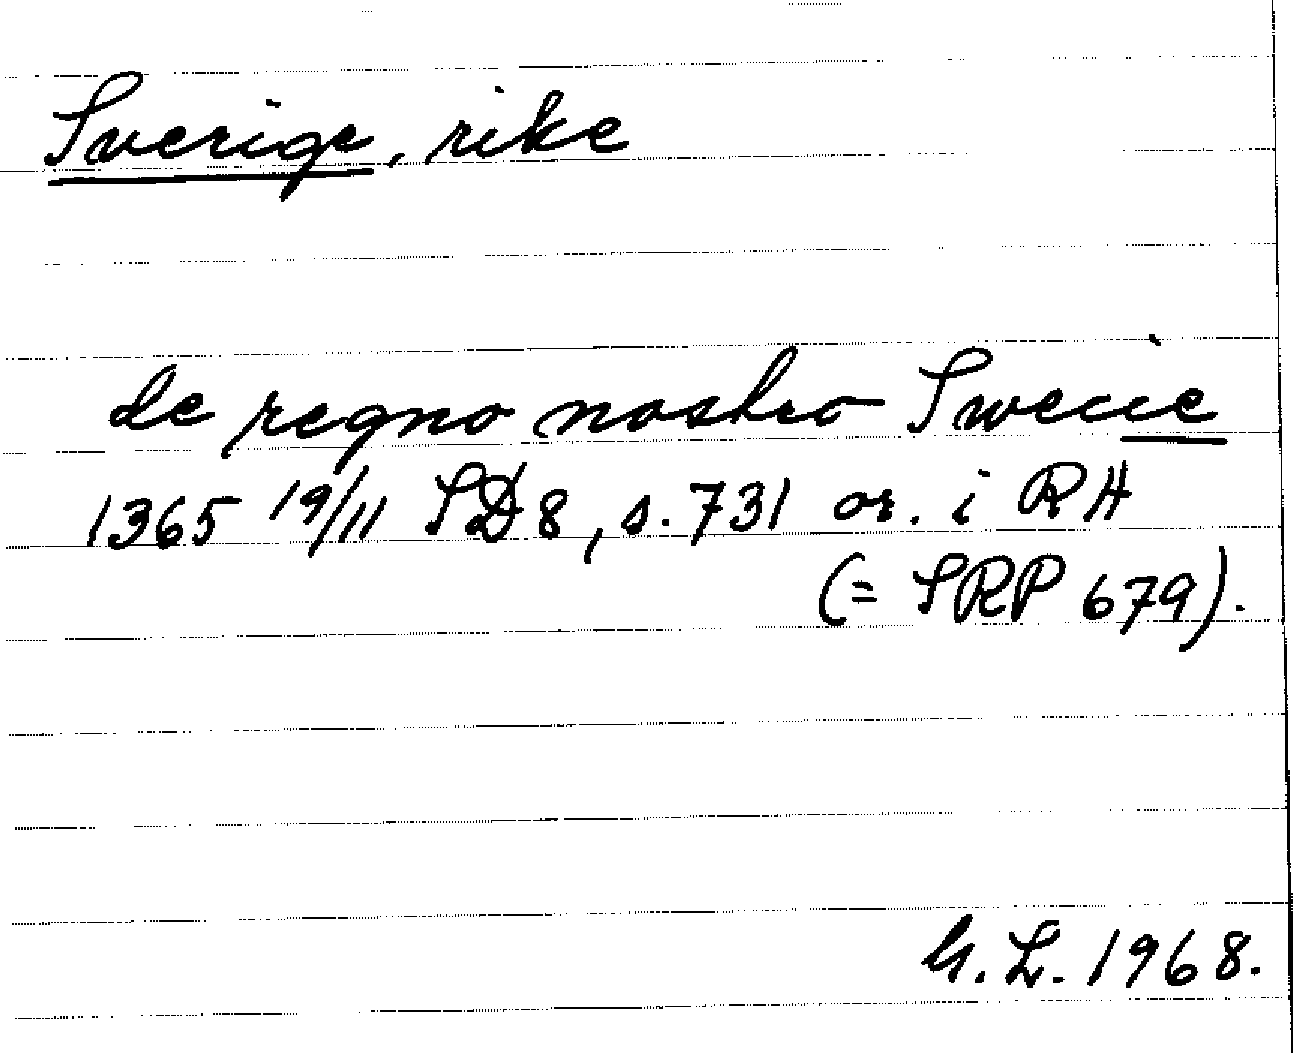 Sverige, rike
de regno nostro Swecie
1365 19/11 SD 8, s. 731 or. i RA
(= SRP 679).
G. L. 1968.